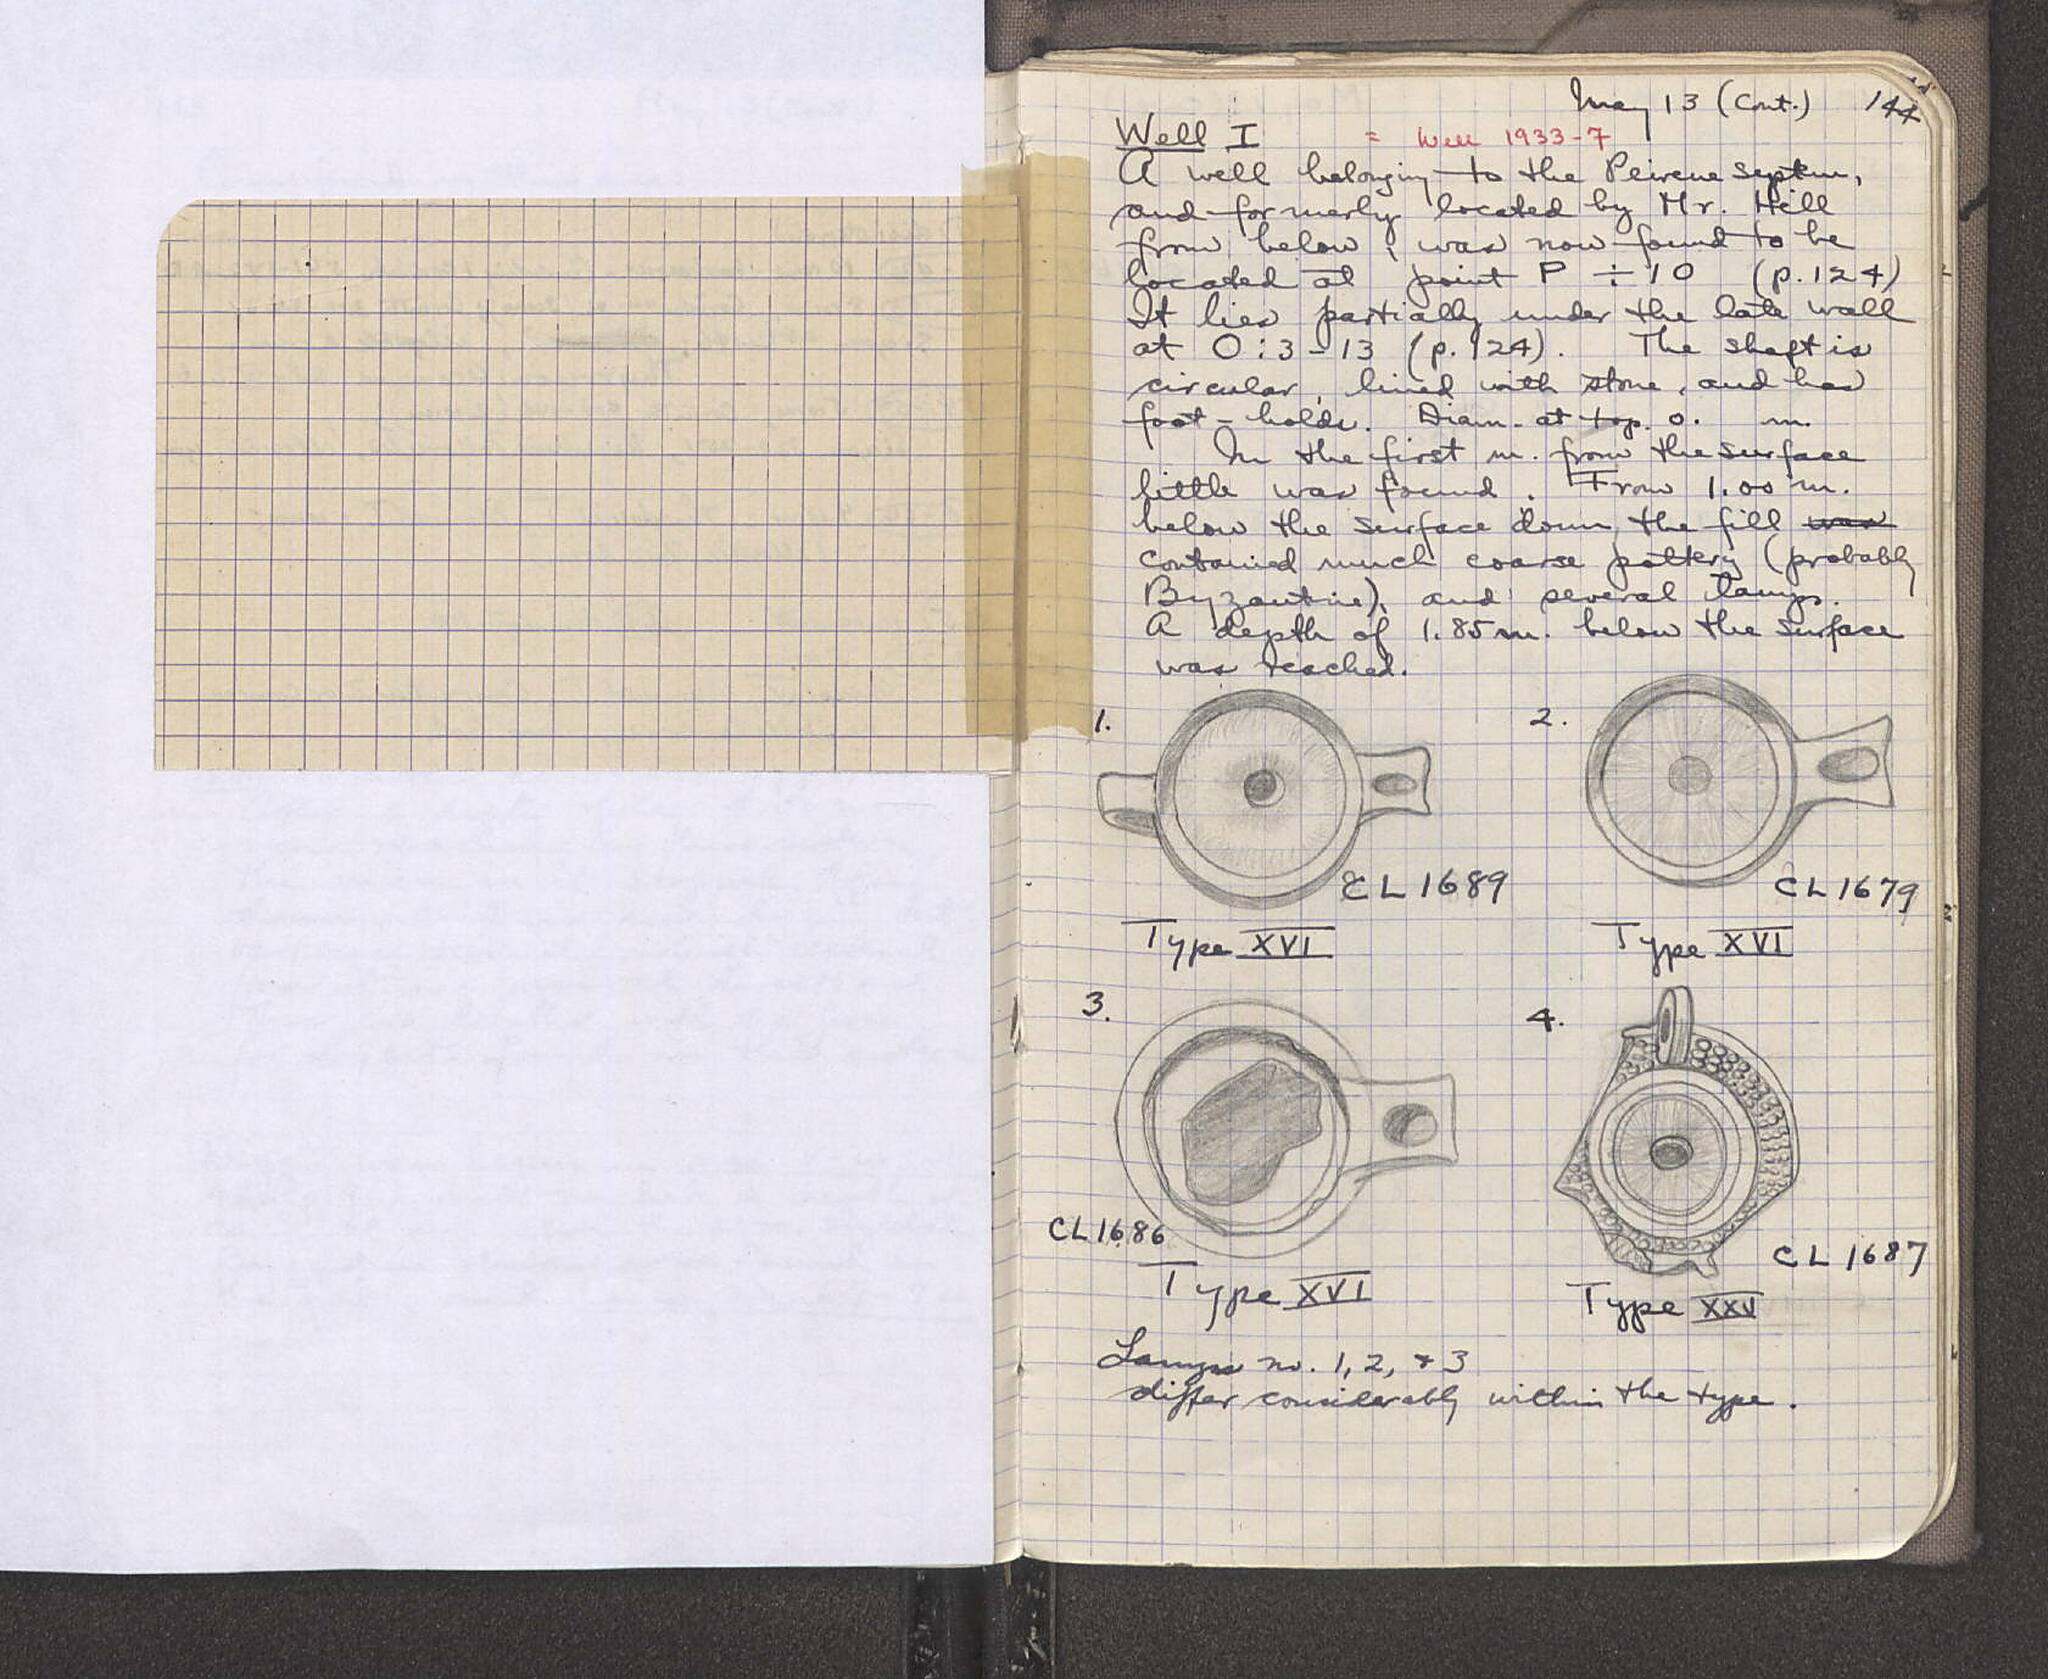 May 13 (Cont.) 144
Well I = Well 1933-7
A well belonging to the Peirene system,
and formerly located by Mr. Hill
from below, was now found to be
located at point P ÷ 10 (p.124)
It lies partially under the late wall
at O:3-13 (p.124). The shaft is
circular, lined with stone, and has
foot-holds. Diam. at top. 0. m.
In the first m. from the surface
little was found. From 1.00 m.
below the surface down, the fill was
contained much coarse pottery (probably
Byzantine), and several lamps.
A depth of 1.85 m. below the surface
was reached.
1.
2.
CL 1689
CL 1679
Type XVI
Type XVI
3.
4.
CL 1686
CL 1687
Type XVI
Type XXV
Lamps no. 1, 2, & 3
differ considerably within the type.